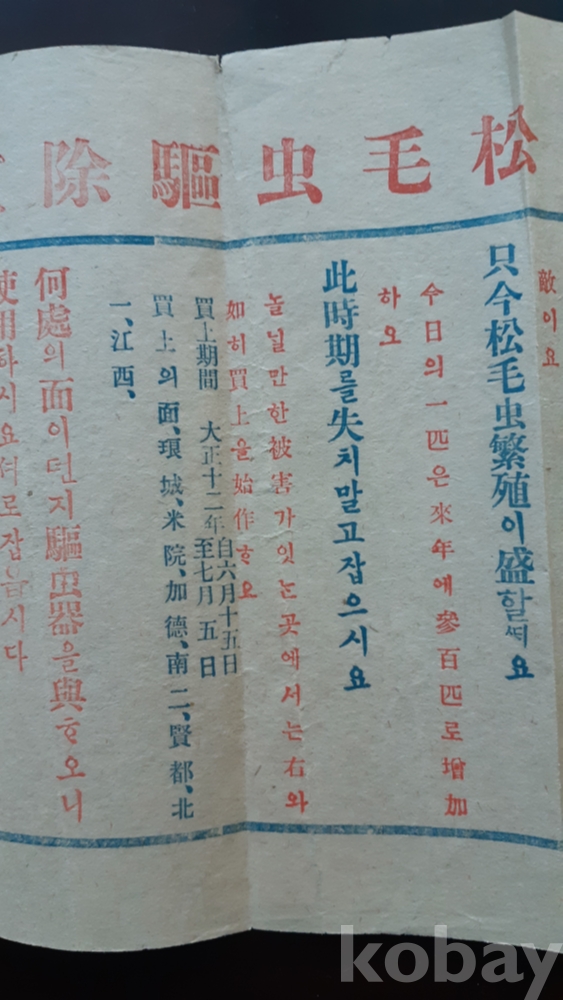 松毛虫驅除
敵이요
只今松毛虫繁殖이盛할ᄯᅢ요
今日의一匹은來年에參百匹로增加
하오
此時期를失치말고잡으시요
놀닐만한被害가잇는곳에서는右와
如히買上을始作ᄒᆞ요
買上期間 大正十二年自六月十五日
至七月五日
買上의面、琅城、米院、加德、南二、賢都、北
一、江西、
何處의面이던지驅虫器을與ᄒᆞ오니
使用하시요서로잡읍시다
kobay